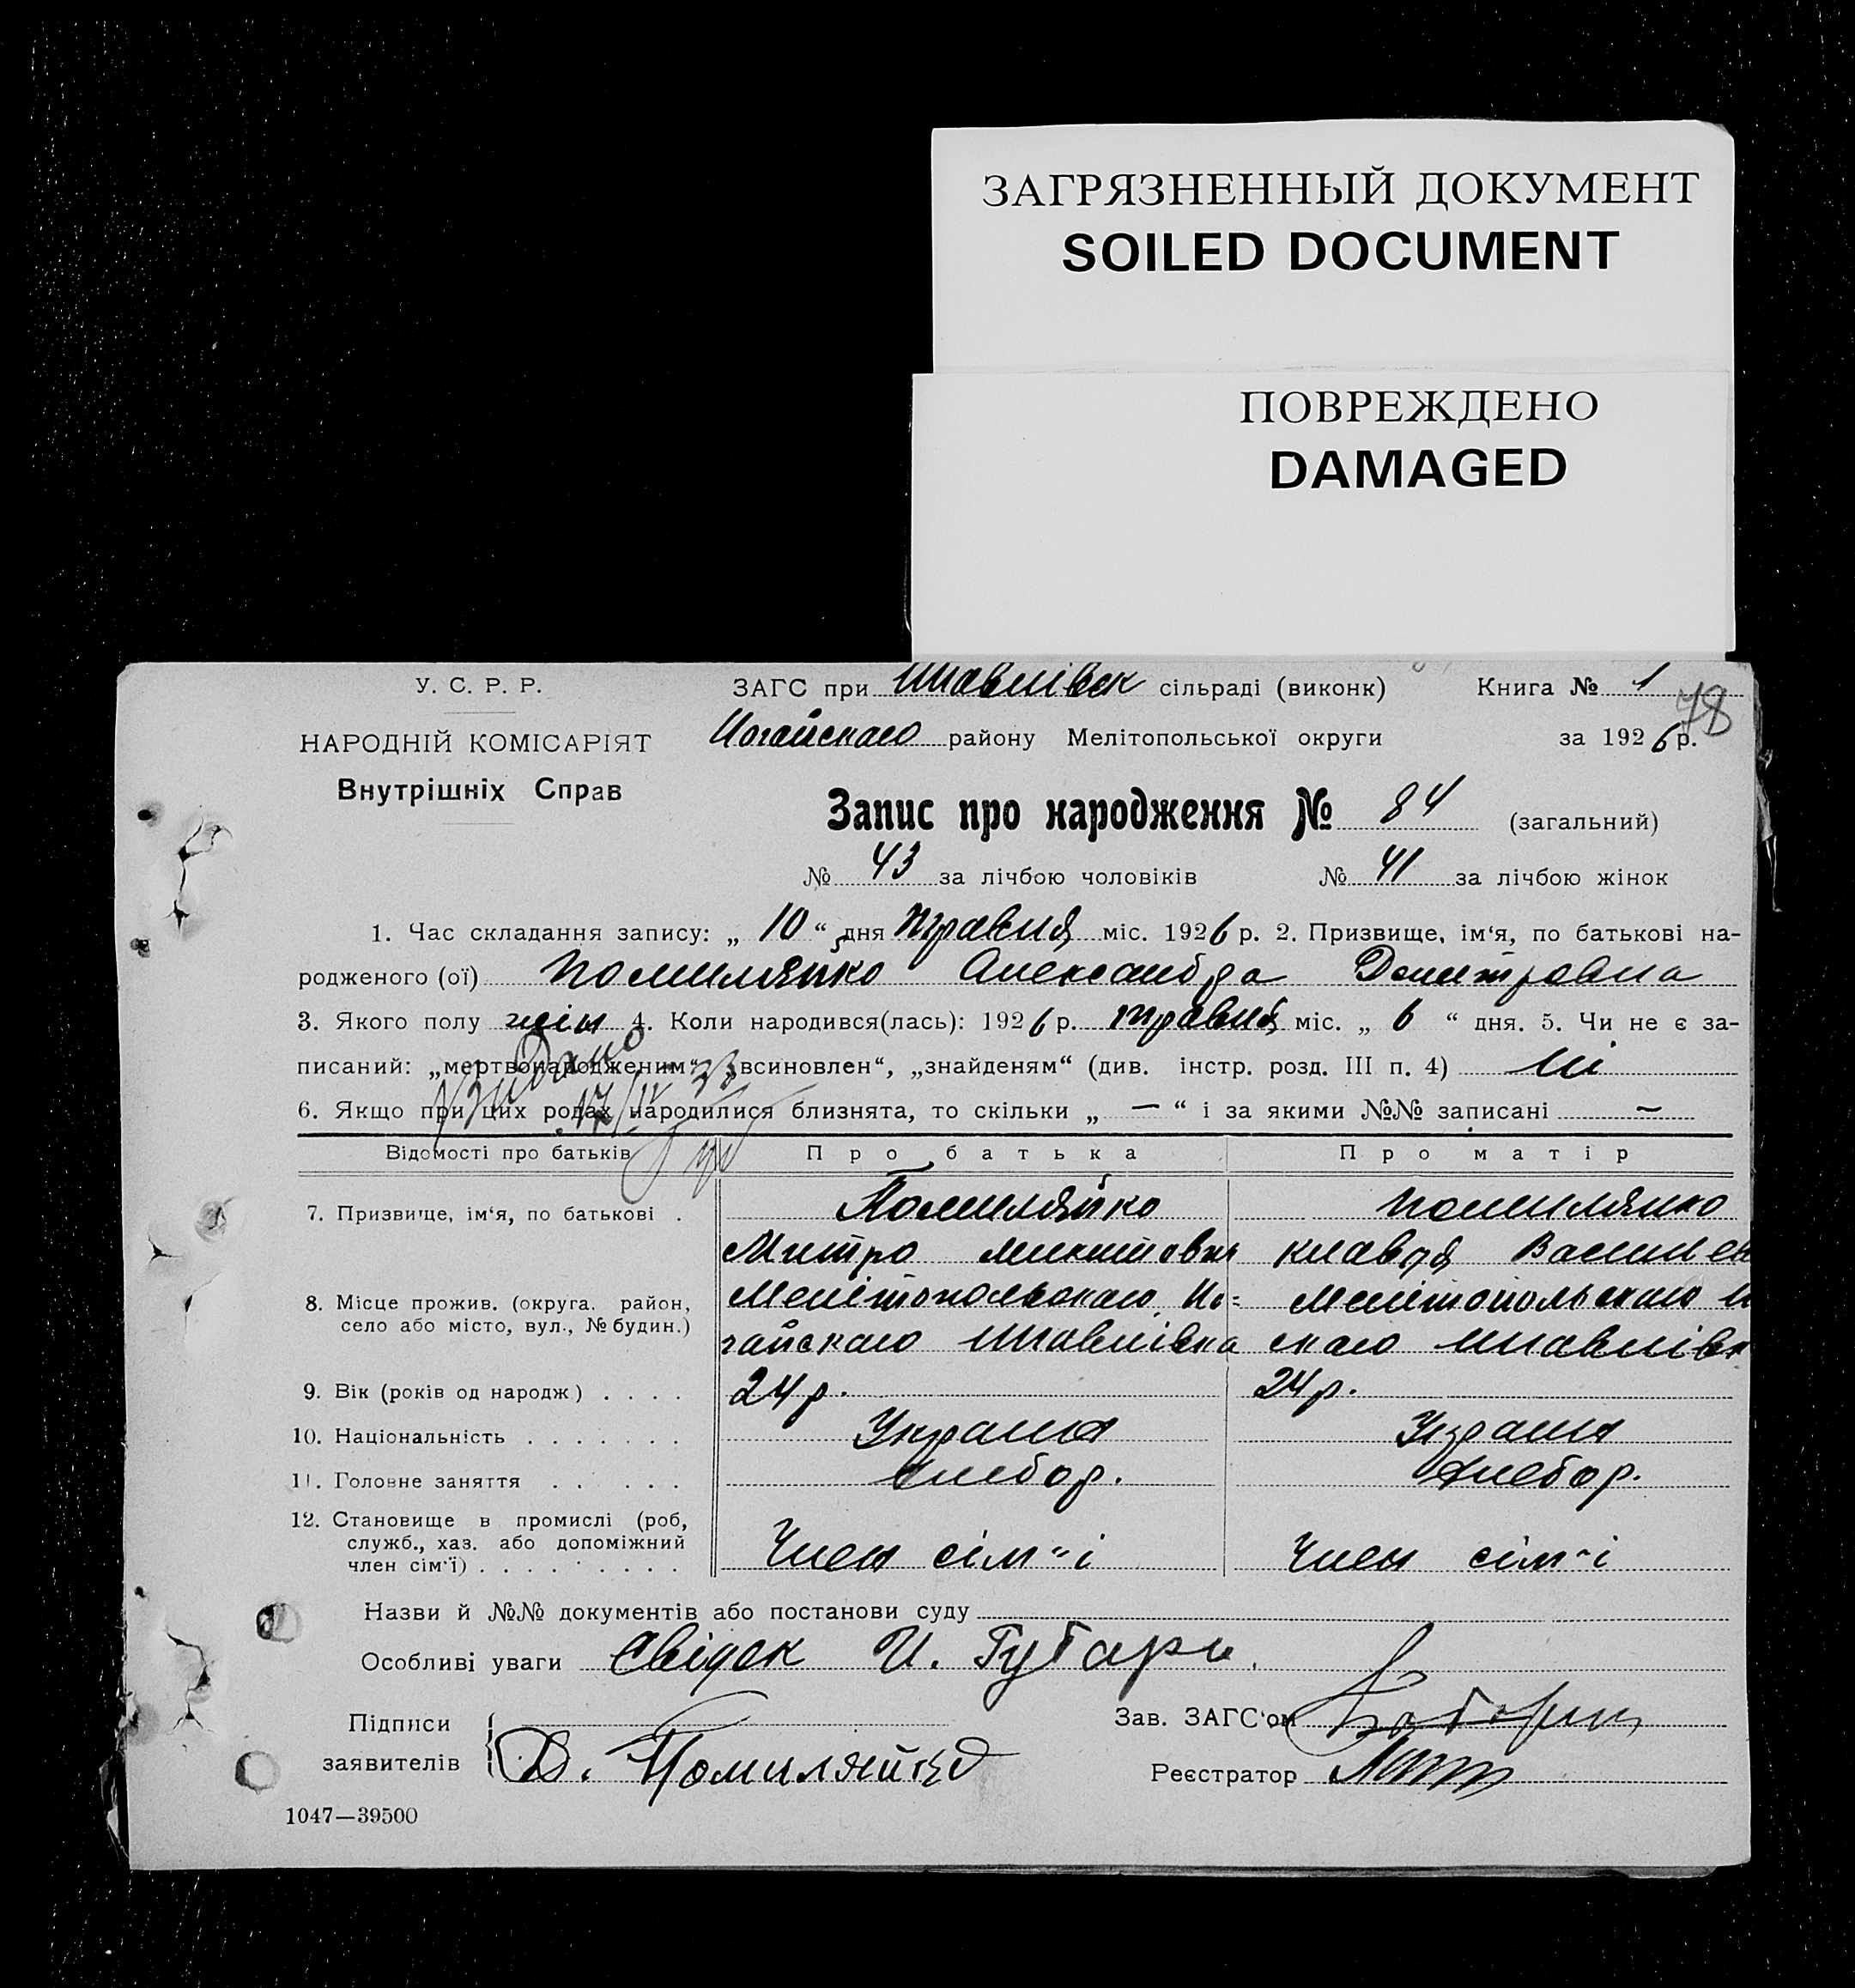 ЗАГРЯЗНЕННЫЙ ДОКУМЕНТ
SOILED DOCUMENT
ПОВРЕЖДЕНО
DAMAGED
У. С. Р. Р.
НАРОДНІЙ КОМІСАРІЯТ
Внутрішніх Справ
ЗАГС при сільраді (виконк) Книга № 1
78
Ногайскаго району Мелітопольської округи за 1926 р.
Запис про народження № 84 (загальний)
№ 43 за лічбою чоловіків № 41 за лічбою жінок
1. Час складання запису: „ 10 “ дня травня міс. 1926 р. 2. Призвище, ім‘я, по батькові на-
родженого (ої) Помиляйко Александра Дмитровна
3. Якого полу жін 4. Коли народився(лась): 1926 р. травня міс. „ 6 “ дня. 5. Чи не є за-
писаний: „мертвонародженим“, „всиновлен“, „знайденям“ (див. інстр. розд. III п. 4) ні
6. Якщо при цих родах народилися близнята, то скільки „ — “ і за якими №№ записані —
Відомості про батьків Про батька Про матір
7. Призвище, ім‘я, по батькові . Помиляйко Помиляйко
Митро Микитович Клавдя Васильев
8. Місце прожив. (округа, район, село або місто, вул., № будин.) Мелітопольскаго Но= Мелітопольскаго
гайскаго скаго
9. Вік (років од народж) . . . . 24 р. 24 р.
10. Національність . . . . . . . Украин Украин
11. Головне заняття . . . . . Хлебор. Хлебор.
12. Становище в промислі (роб,
служб., хаз. або допоміжний
член сім‘ї) . . . . . . . . . Член сім"і Член сім"і
Назви й №№ документів або постанови суду
Особливі уваги Свідок И. Губарь.
Підписи
заявителів Д. Помиляйко
Зав. ЗАГС‘ом
Реєстратор
1047—39500